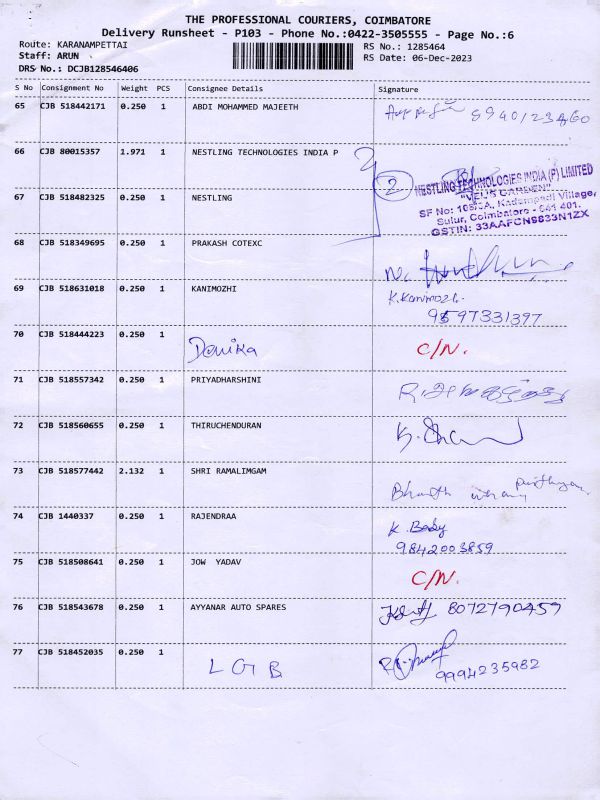 THE PROFESSIONAL COURIERS, COIMBATORE
Delivery Runsheet - P103 - Phone No.:0422-3505555 - Page No.:6
Route: KARANAMPETTAI RS No.: 1285464
Staff: ARUN RS Date: 06-Dec-2023
DRS No.: DCJB128546406
S No Consignment No Weight PCS Consignee Details Signature
65 CJB 518442171 0.250 1 ABDI MOHAMMED MAJEETH
66 CJB 80015357 1.971 1 NESTLING TECHNOLOGIES INDIA P
2
NESTLING TECHNOLOGIES INDIA (P) LIMITED
67 CJB 518482325 0.250 1 NESTLING
Sulur, Coimbatore - 641 401.
GSTIN: 33AAFCN9833N1ZX
68 CJB 518349695 0.250 1 PRAKASH COTEXC
69 CJB 518631018 0.250 1 KANIMOZHI K.Kanimozhi.
9597331397
70 CJB 518444223 0.250 1 C/N.
71 CJB 518557342 0.250 1 PRIYADHARSHINI
72 CJB 518560655 0.250 1 THIRUCHENDURAN
73 CJB 518577442 2.132 1 SHRI RAMALIMGAM
74 CJB 1440337 0.250 1 RAJENDRAA
9842003859
75 CJB 518508641 0.250 1 JOW YADAV C/N.
76 CJB 518543678 0.250 1 AYYANAR AUTO SPARES 8072790459
77 CJB 518452035 0.250 1 LGB 9994235982